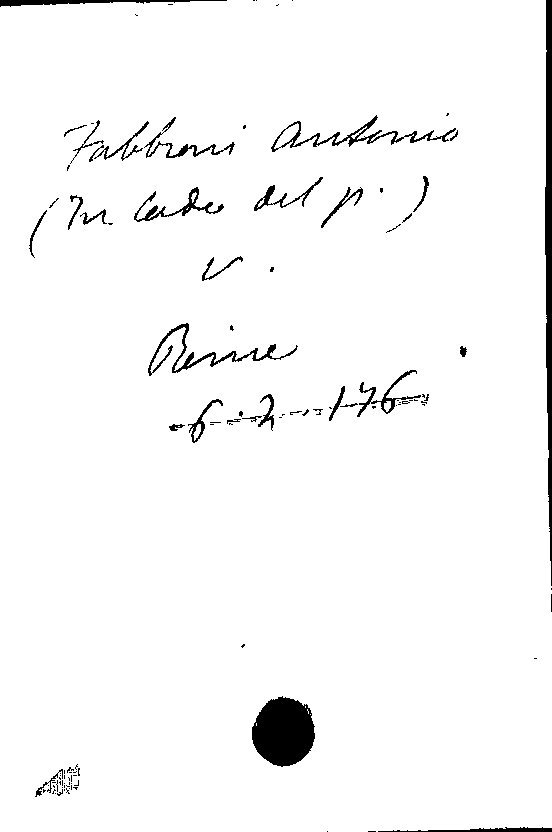 Fabbroni Antonio
(In Cadeo del p.)
v.
Rime
6.2.176